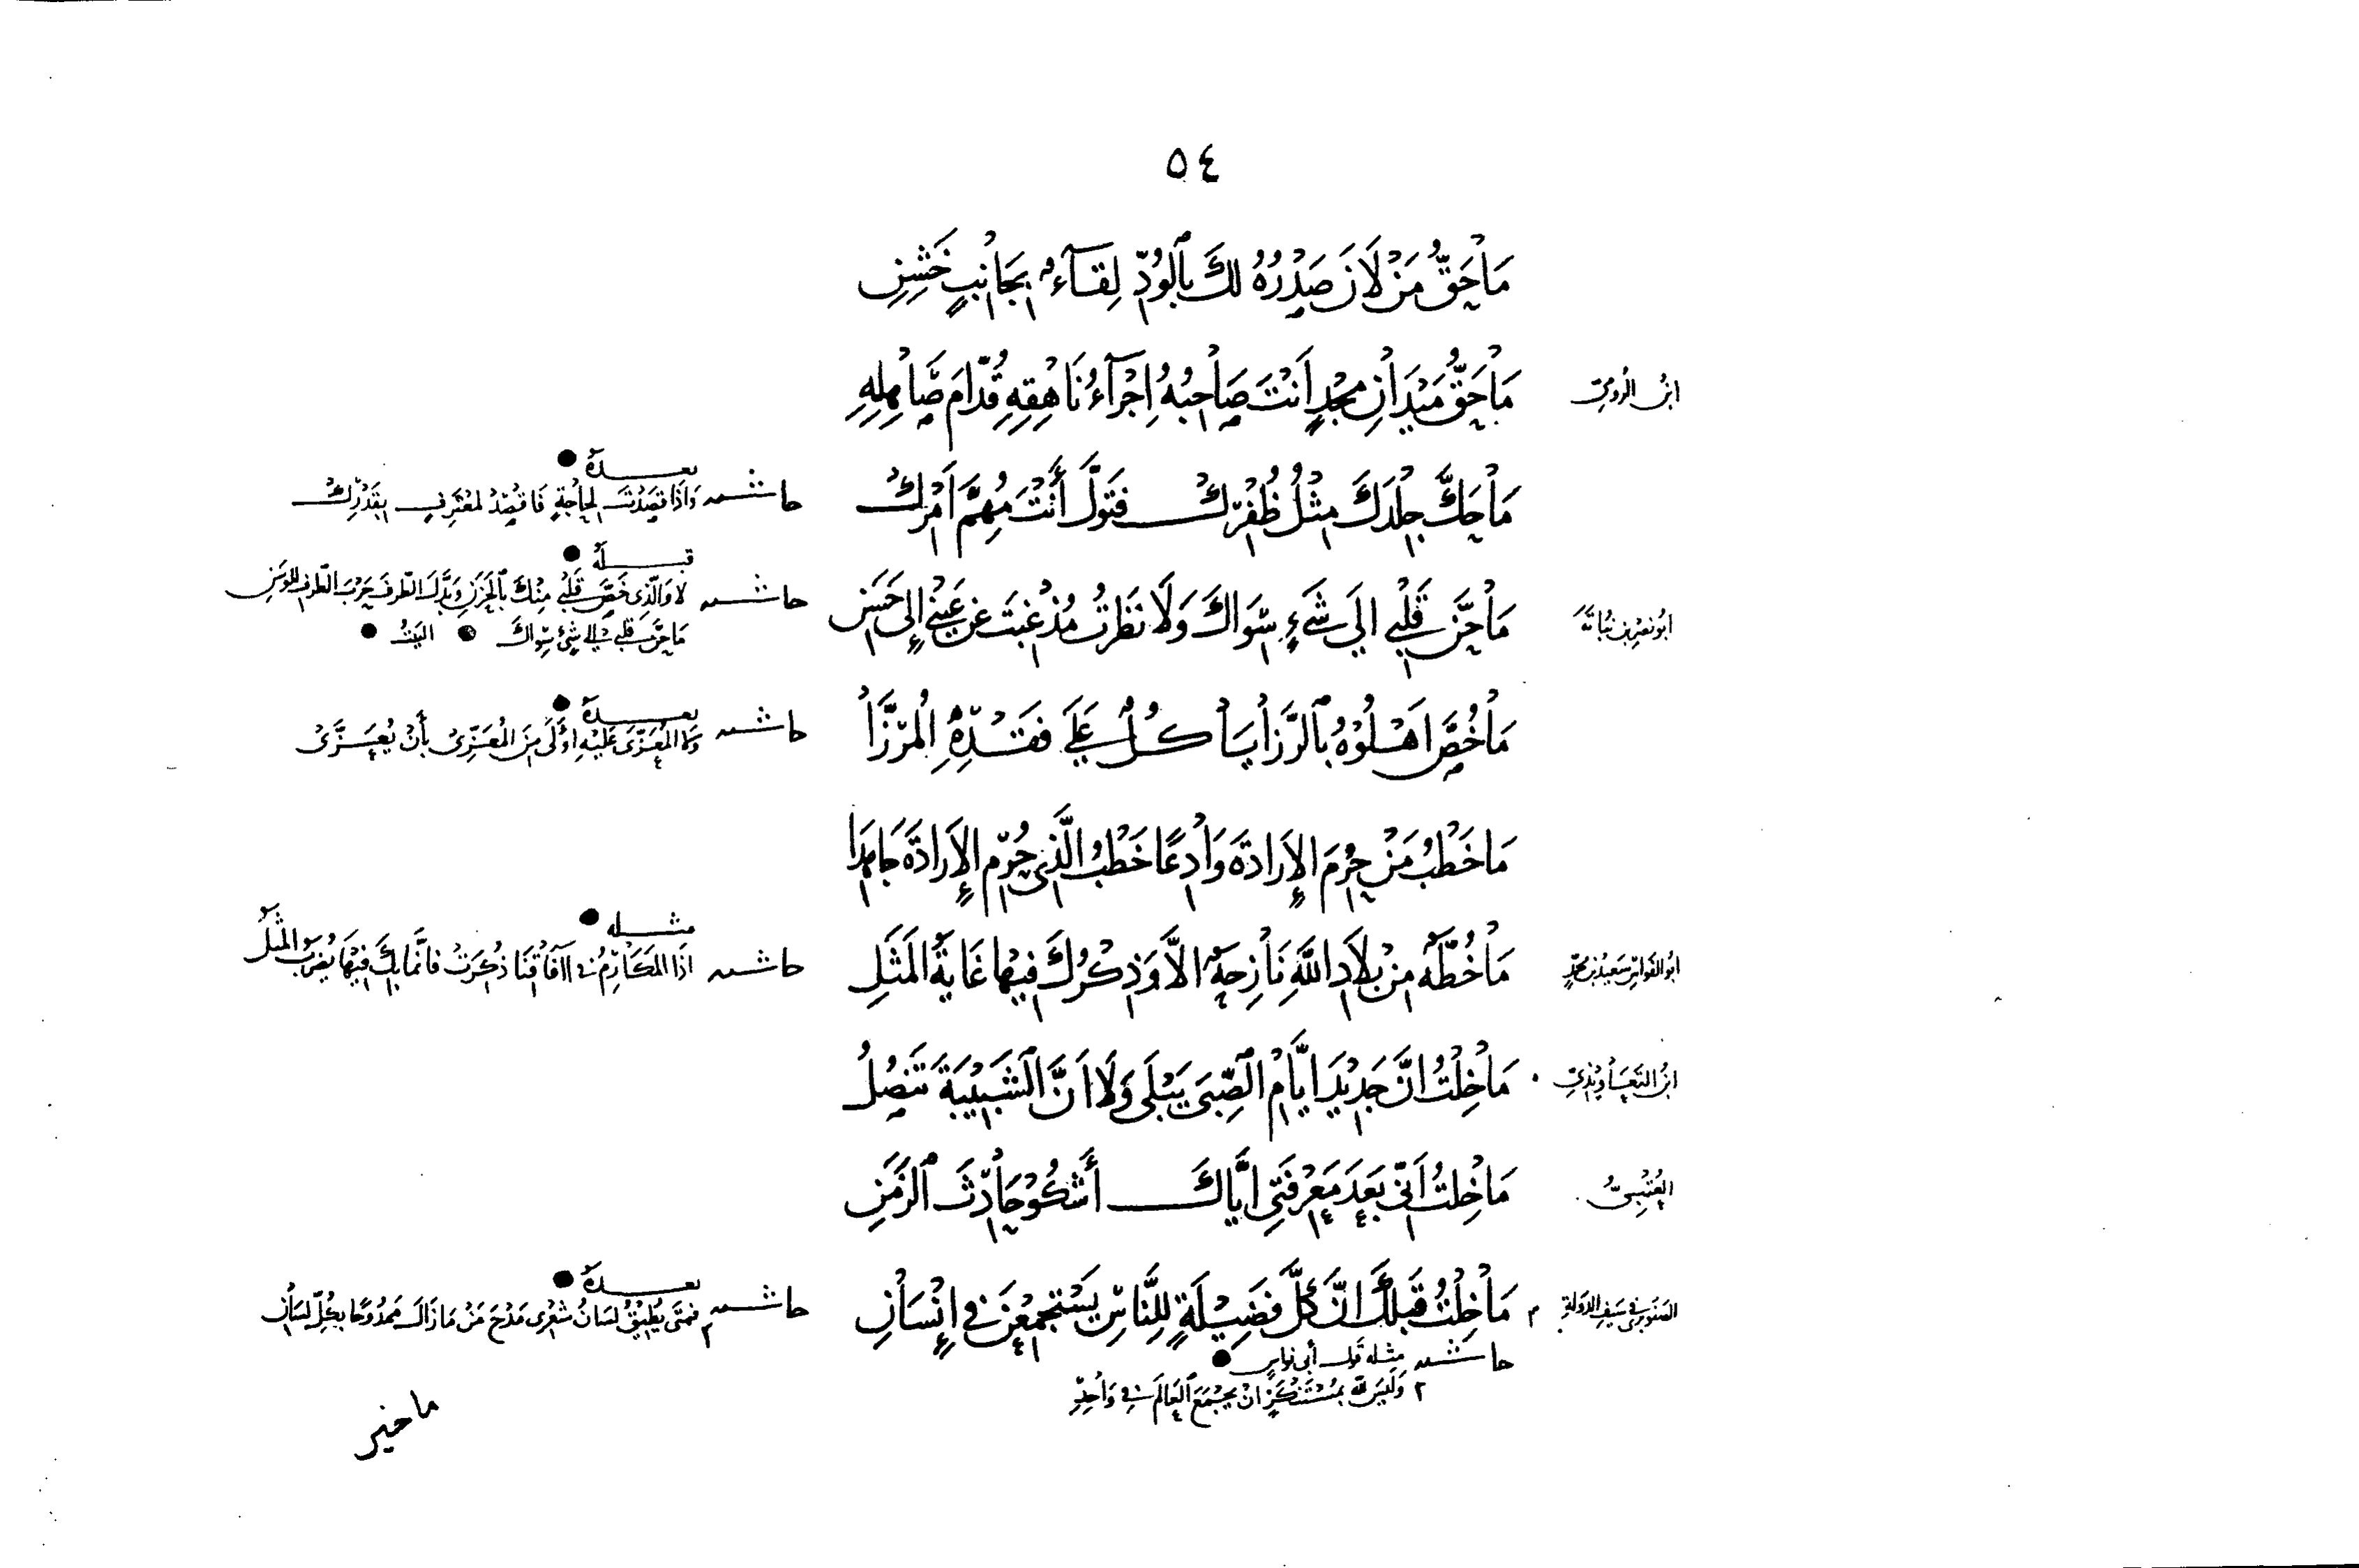 ٥٤
مَا حَقُّ مَنْ لَانَ صَدْرُهُ لَكَ بِالْوُدِّ لِقَآءٌ بِجَانِبٍ خَشِنِ
ابْنُ الرُّومِيّ
مَا حَقُّ مَيْدَانِ مَجْدٍ أَنْتَ صَاحِبُهُ إِجْرَآءُ نَاهِقِهِ قُدَّامَ صَاهِلِهِ
مَا حَكَّ جِلْدَكَ مِثْلُ ظُفْرِكْ فَتَوَلَّ أَنْتَ مُهِمَّ أَمْرِكْ
حاشية بعده
وَإِذَا قَصَدْتَ لِحَاجَةٍ فَاقْصِدْ لِمُعْتَرِفٍ بِقَدْرِكْ
أبُو نَصْرِ بن نُبَاتَةَ
مَا حَنَّ قَلْبِي إِلَى شَيْءٍ سِوَاكَ وَلَا نَظَرْتُ مُذْ غِبْتَ عَنْ عَيْنِي إِلَى حَسَنِ
حاشية قبله
لا وَالَّذِي خَصَّ قَلْبِي مِنْكَ بِالْحَزَنِ وَبَدَّلَ الطَّرفَ حَرْبَ الطَّرفِ للوَسَنِ
مَا حَنَّ قَلبِي إِلى شَيْءٍ سِوَاكَ البَيْتُ
مَا خُصَّ أَهْلُوهُ بِالرَّزَايَا كُلٌّ عَلَى فَقْدِهِ الْمُرَزَّا
حاشية بعده
وَمَا الْمُعَزَّى عَلَيْهِ أَوْلَى مِنَ الْمُعَزِّي بِأَنْ يُعَزَّى
مَا خَطْبُ مَنْ حُرِمَ الإِرَادَةَ وَادِعًا خَطْبُ الَّذِي حُرِمَ الإِرَادَةَ جَاهِدَا
أبُو الفَوَارِسِ سَعِيدُ بنُ مُحَمَّدٍ
مَا خُطَّةٌ مِنْ بِلَادِ اللَّهِ نَازِحَةٌ إِلَّا وَذِكْرُكَ فِيهَا غَايَةُ الْمَثَلِ
حاشية مثله
إِذَا الْمَكَارِمُ فِي آفَاقِنَا ذُكِرَتْ فَإِنَّمَا بِكَ فِيهَا يُضْرَبُ الْمَثَلُ
ابْنُ التَّعَاوِيذِيّ
مَا خِلْتُ أَنَّ جَدِيدَ أَيَّامِ الصِّبَى يَبْلَى وَلَا أَنَّ الشَّبِيبَةَ تَنْصُلُ
العُتْبِيُّ
مَا خِلْتُ أَنِّي بَعْدَ مَعْرِفَتِي إِيَّاكَ أَشْكُو حَادِثَ الزَّمَنِ
الصنوبري في سَيفِ الدولةِ
مَا خِلْتُ قَبْلَكَ أَنَّ كُلَّ فَضِيلَةٍ لِلنَّاسِ يَسْتَجْمِعْنَ فِي إِنْسَانِ
حاشية بعده
فَمَتَى يُطِيقُ لِسَانُ شِعْرِي مَدْحَ مَنْ مَا زَالَ مَمْدُوحًا بِكُلِّ لِسَانِ
حاشية مثله قول أبي نواسٍ
وَلَيْسَ لِلّهِ بِمُسْتَنْكَرٍ أَنْ يَجْمَعَ الْعَالَمَ فِي وَاحِدِ
ما خير